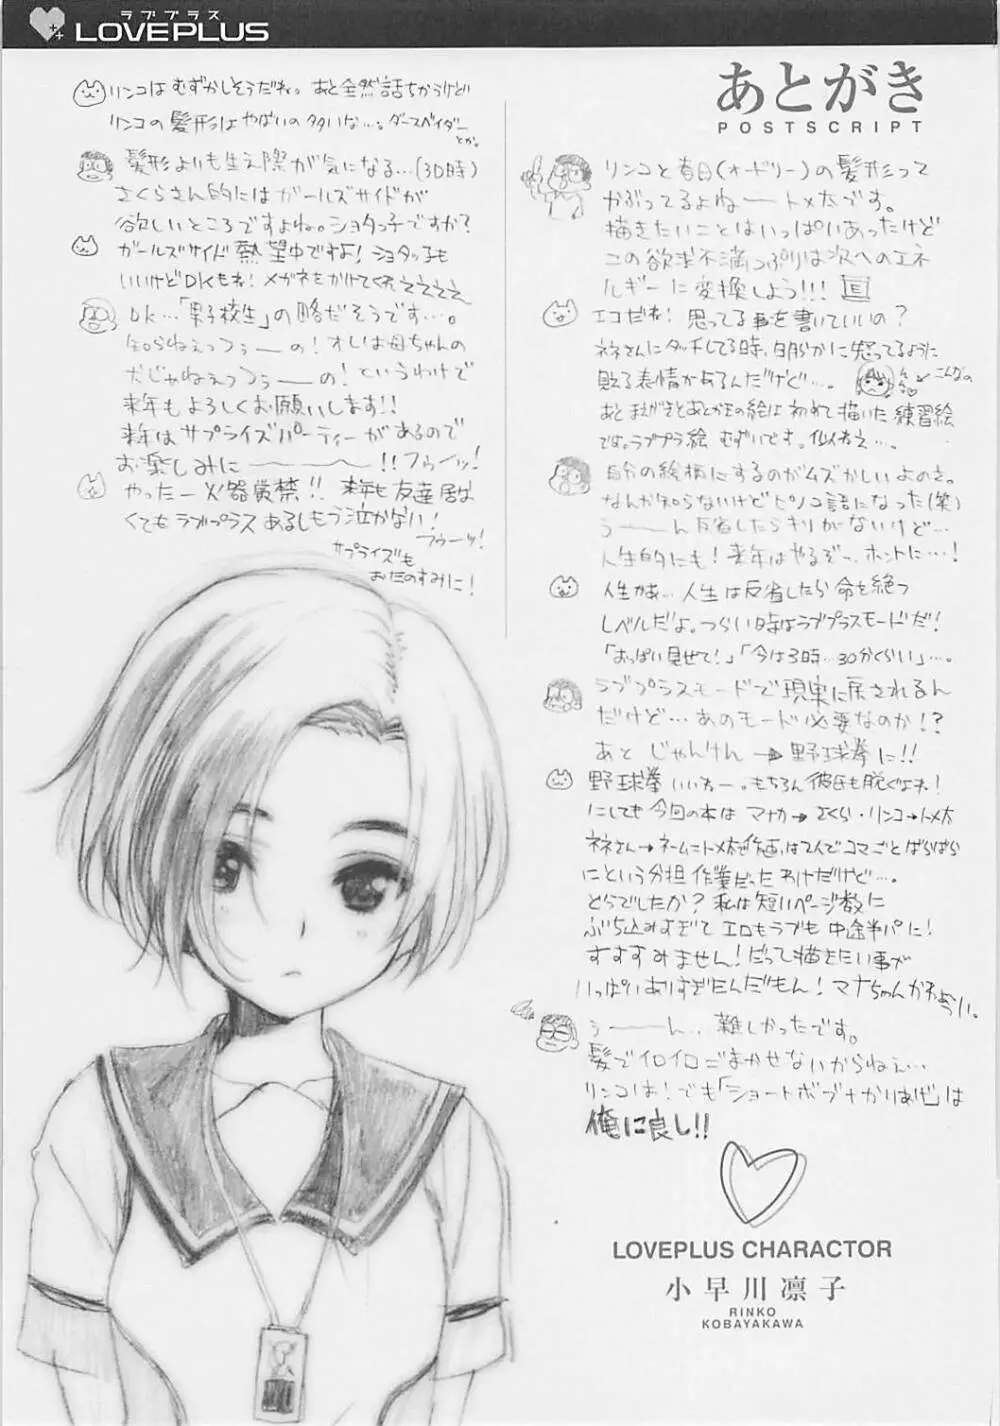 ラブプラス
LOVEPLUS
あとがき
POSTSCRIPT
リンコと春日(オードリー)の髪形って
かぶってるよねートメ太です。
描きたいことはいっぱいあったけど
この欲求不満っぷりは次へのエネ
ルギーに変換しよう!!!
エコだね! 思ってる事を書いていいの?
ネネさんにタッチしてる時、明らかに怒ってるように
見える表情があるんだけど…。
こんなの
あとまえがきとあとがきの絵は初めて描いた練習絵
です。ラブプラ絵 むずいです。似ねえ…。
自分の絵柄にするのがムズかしいよのさ。
なんか知らないけどピノコ語になった(笑)
うーーん反省したらキリがないけど…
人生的にも! 来年はやるぞー、ホントに…!
人生かぁ… 人生は反省したら命を絶つ
レベルだよ。つらい時はラブプラスモードだ!
「おっぱい見せて!」「今は3時…30分くらい」…。
ラブプラスモードで現実に戻されるん
だけど…あのモード必要なのか!?
あと じゃんけん→野球拳に!!
野球拳いいねー。もちろん彼氏も脱ぐよね!
にしても今回の本は マナカ→さくら・リンコ→トメ太
ネネさん→ネームニトメ太で作画は2人でコマごとばらばら
にという分担作業だったわけだけど…。
どうでしたか? 私は短いページ数に
ぶち込みすぎて エロもラブも中途半パに!
すすすみません! だって描きたい事が
いっぱいありすぎたんだもん! マナちゃんかわようい。
うーーん… 難しかったです。
髪でイロイロごまかせないからねぇ…
リンコは! でも「ショートボブ+かりあげ」は
俺に良し!!
リンコはむずかしそうだね。あと全然話ちがうけど
リンコの髪形はやばいの多いな…。ダースベイダー
とか。
髪形よりも生え際が気になる…(3D時)
さくらさん的にはガールズサイドが
欲しいところですよね。ショタっ子ですか?
ガールズサイド熱望中ですよ! ショタっ子も
いいけどDKもね! メガネをかけてくれえええええ
DK…「男子校生」の略だそうです…。
知らねえっつぅーの! オレは母ちゃんの
犬じゃねえっつぅーの! というわけで
来年もよろしくお願いします!!
来年はサプライズパーティーがあるので
お楽しみにーーーー!! フゥーッ!
やったー火器厳禁!! 来年も友達居な
くてもラブプラスあるしもう泣かない!
フゥーッ!
サプライズも
おたのすみに!
LOVEPLUS CHARACTOR
小早川凛子
RINKO
KOBAYAKAWA